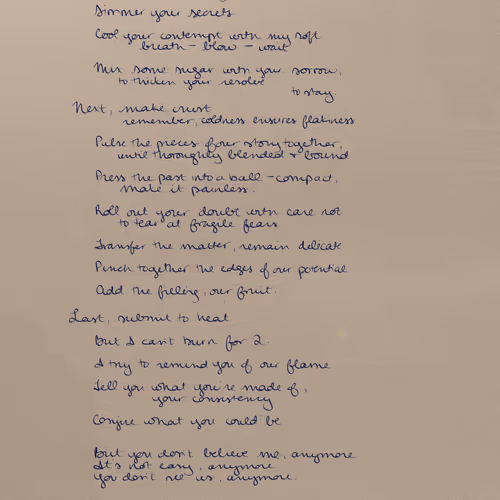 Simmer your secrets
Cool your contempt with my soft
breath - blow - wait
Mix some sugar with your sorrow,
to thicken your resolve
to stay.
Next, make crust
remember, coldness ensures flakiness
Pulse the pieces of our story together,
until thoroughly blended + bound
Press the past into a ball - compact,
make it painless.
Roll out your doubt with care not
to tear at fragile fears
Transfer the matter, remain delicate
Pinch together the edges of our potential
Add the filling, our fruit.
Last, submit to heat
But I can't burn for 2.
I try to remind you of our flame
Tell you what you're made of,
your consistency
Conjure what you could be
But you don't believe me, anymore
It's not easy, anymore
You don't see us, anymore.